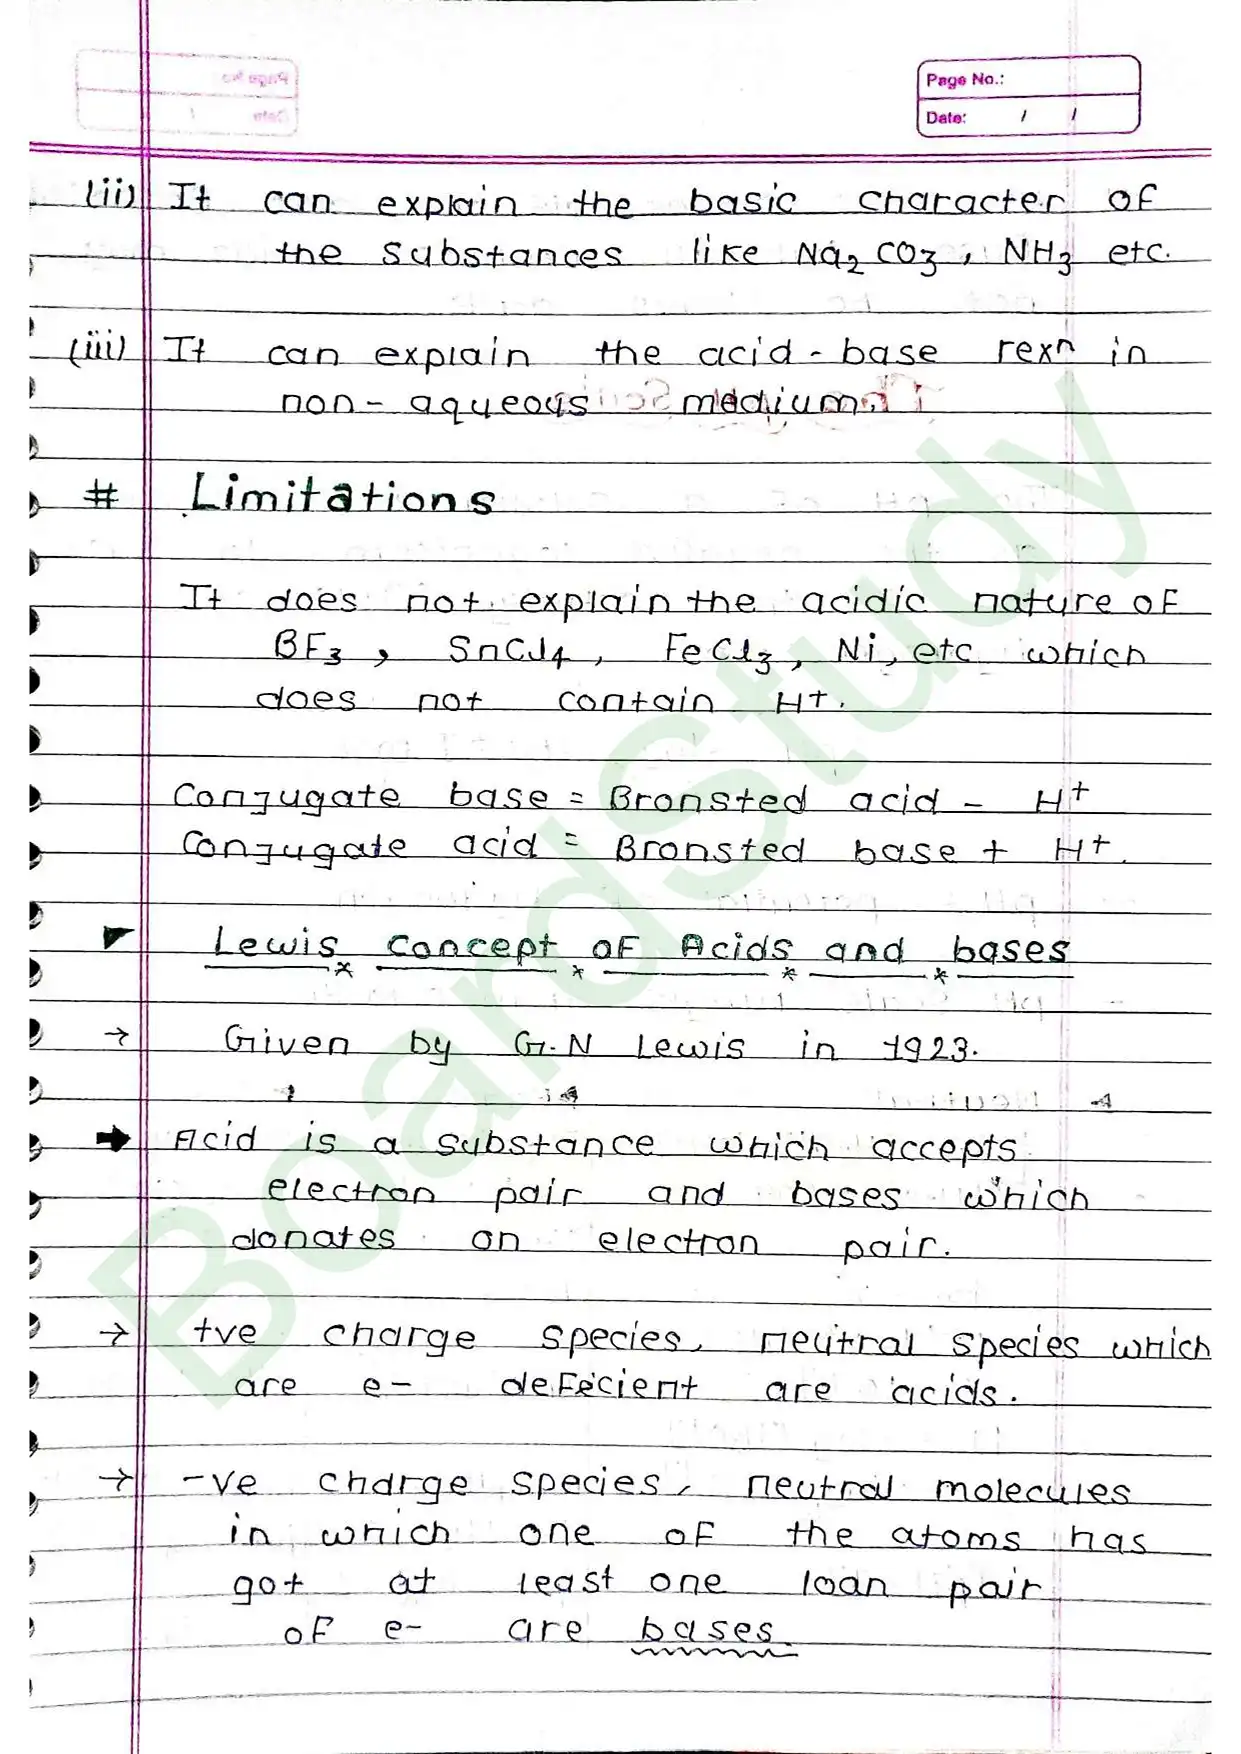 Page No.:
Date: / /
(ii) It can explain the basic character of
the substances like Na₂CO₃, NH₃ etc.
(iii) It can explain the acid-base rexⁿ in
non-aqueous medium.
# Limitations
It does not explain the acidic nature of
BF₃, SnCl₄, FeCl₃, Ni, etc which
does not contain H⁺.
Conjugate base = Bronsted acid - H⁺
Conjugate acid = Bronsted base + H⁺.
Lewis concept of Acids and bases
→ Given by G.N Lewis in 1923.
➡ Acid is a substance which accepts
electron pair and bases which
donates an electron pair.
→ +ve charge species, neutral species which
are e- defecient are acids.
→ -ve charge species, neutral molecules
in which one of the atoms has
got at least one loan pair
of e- are bases.
BoardStudy